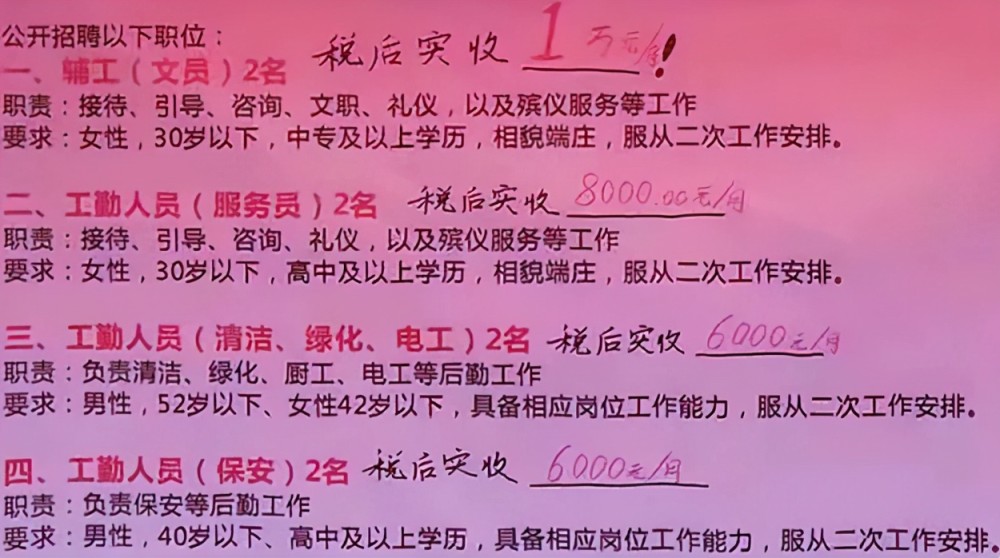 公开招聘以下职位：
税后实收 1万元/月！
一、辅工（文员）2名
职责：接待、引导、咨询、文职、礼仪，以及殡仪服务等工作
要求：女性，30岁以下，中专及以上学历，相貌端庄，服从二次工作安排。
二、工勤人员（服务员）2名 税后实收 8000.00元/月
职责：接待、引导、咨询、礼仪，以及殡仪服务等工作
要求：女性，30岁以下，高中及以上学历，相貌端庄，服从二次工作安排。
三、工勤人员（清洁、绿化、电工）2名 税后实收 6000元/月
职责：负责清洁、绿化、厨工、电工等后勤工作
要求：男性，52岁以下、女性42岁以下，具备相应岗位工作能力，服从二次工作安排。
四、工勤人员（保安）2名 税后实收 6000元/月
职责：负责保安等后勤工作
要求：男性，40岁以下、高中及以上学历，具备相应岗位工作能力，服从二次工作安排。